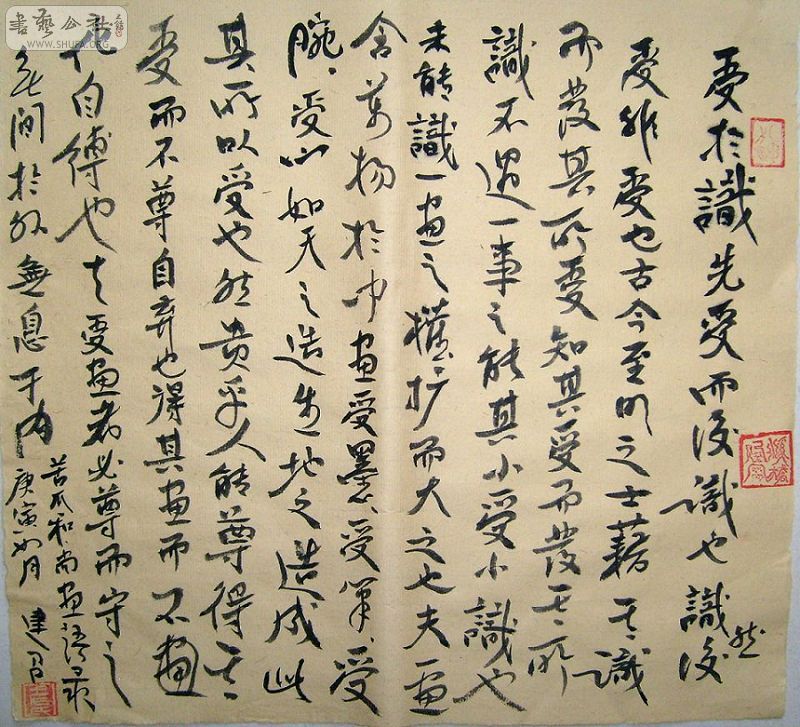 書藝公社
WWW.SHUFA.ORG
受於識先受而後識也識後
然
受非受也古今至明之士藉其識
而發其所受知其受而發其所
識不過一事之能其小受小識也
未能識一画之權扩而大之也夫一画
含萬物於中画受墨、受筆、受
腕、受心如天之造生地之造成此
其所以受也然贵乎人能尊得其
受而不尊自弃也得其画而不画
化自缚也夫受画者必尊而守之
无间於外無息于内
苦瓜和尚画语录
庚寅如月
建